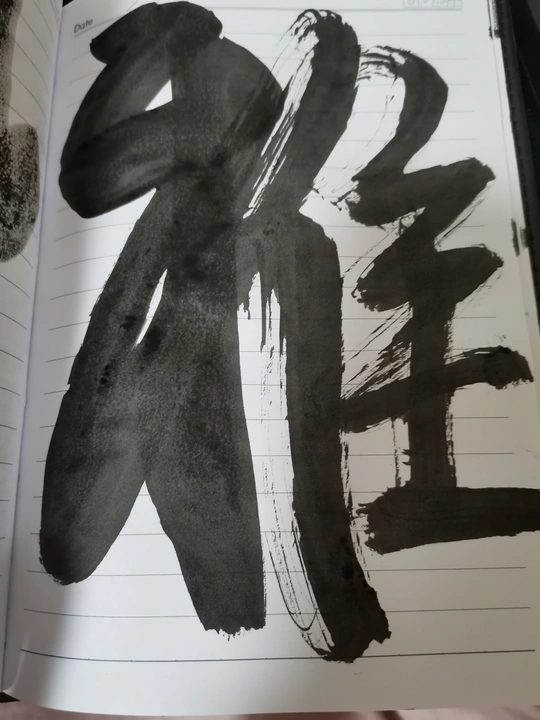 Date
雅